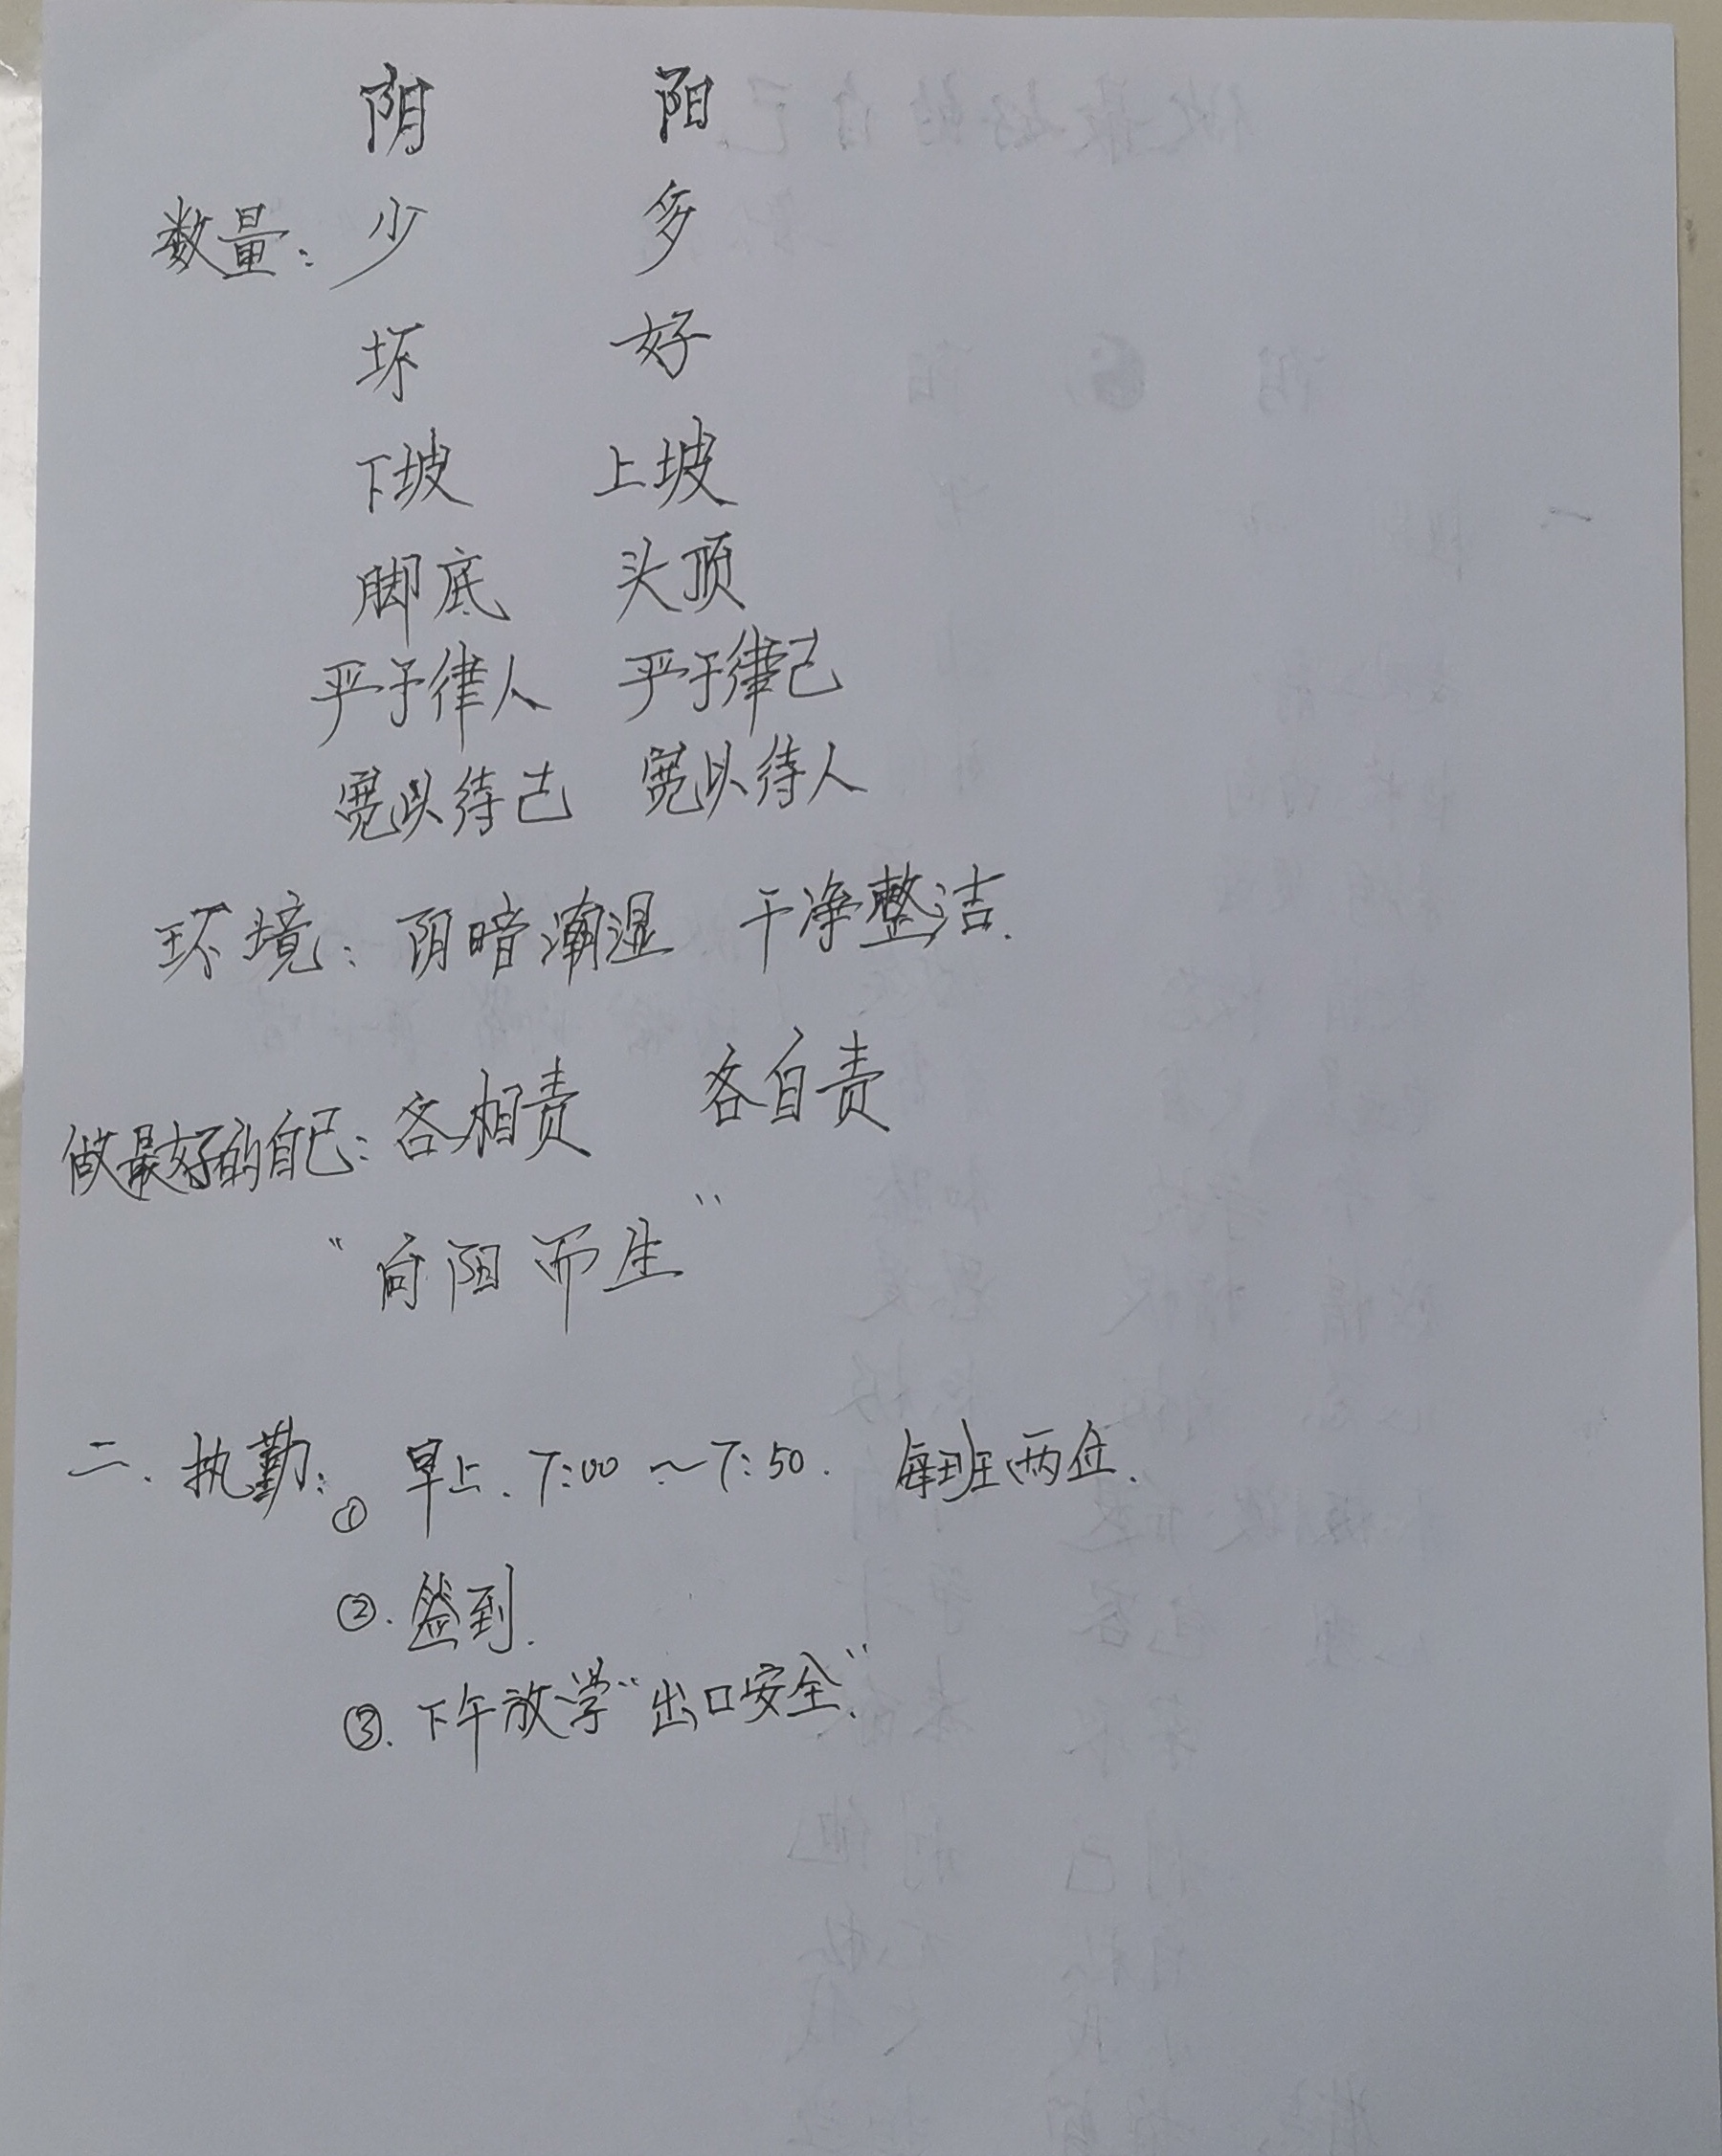 阴 阳
数量：少 多
坏 好
下坡 上坡
脚底 头顶
严于律人 严于律己
宽以待己 宽以待人
环境：阴暗潮湿 干净整洁.
做最好的自己：各相责 各自责
“向阳而生”
二．执勤：① 早上．7:00～7:50． 每班两位．
②．签到．
③．下午放学“出口安全”．